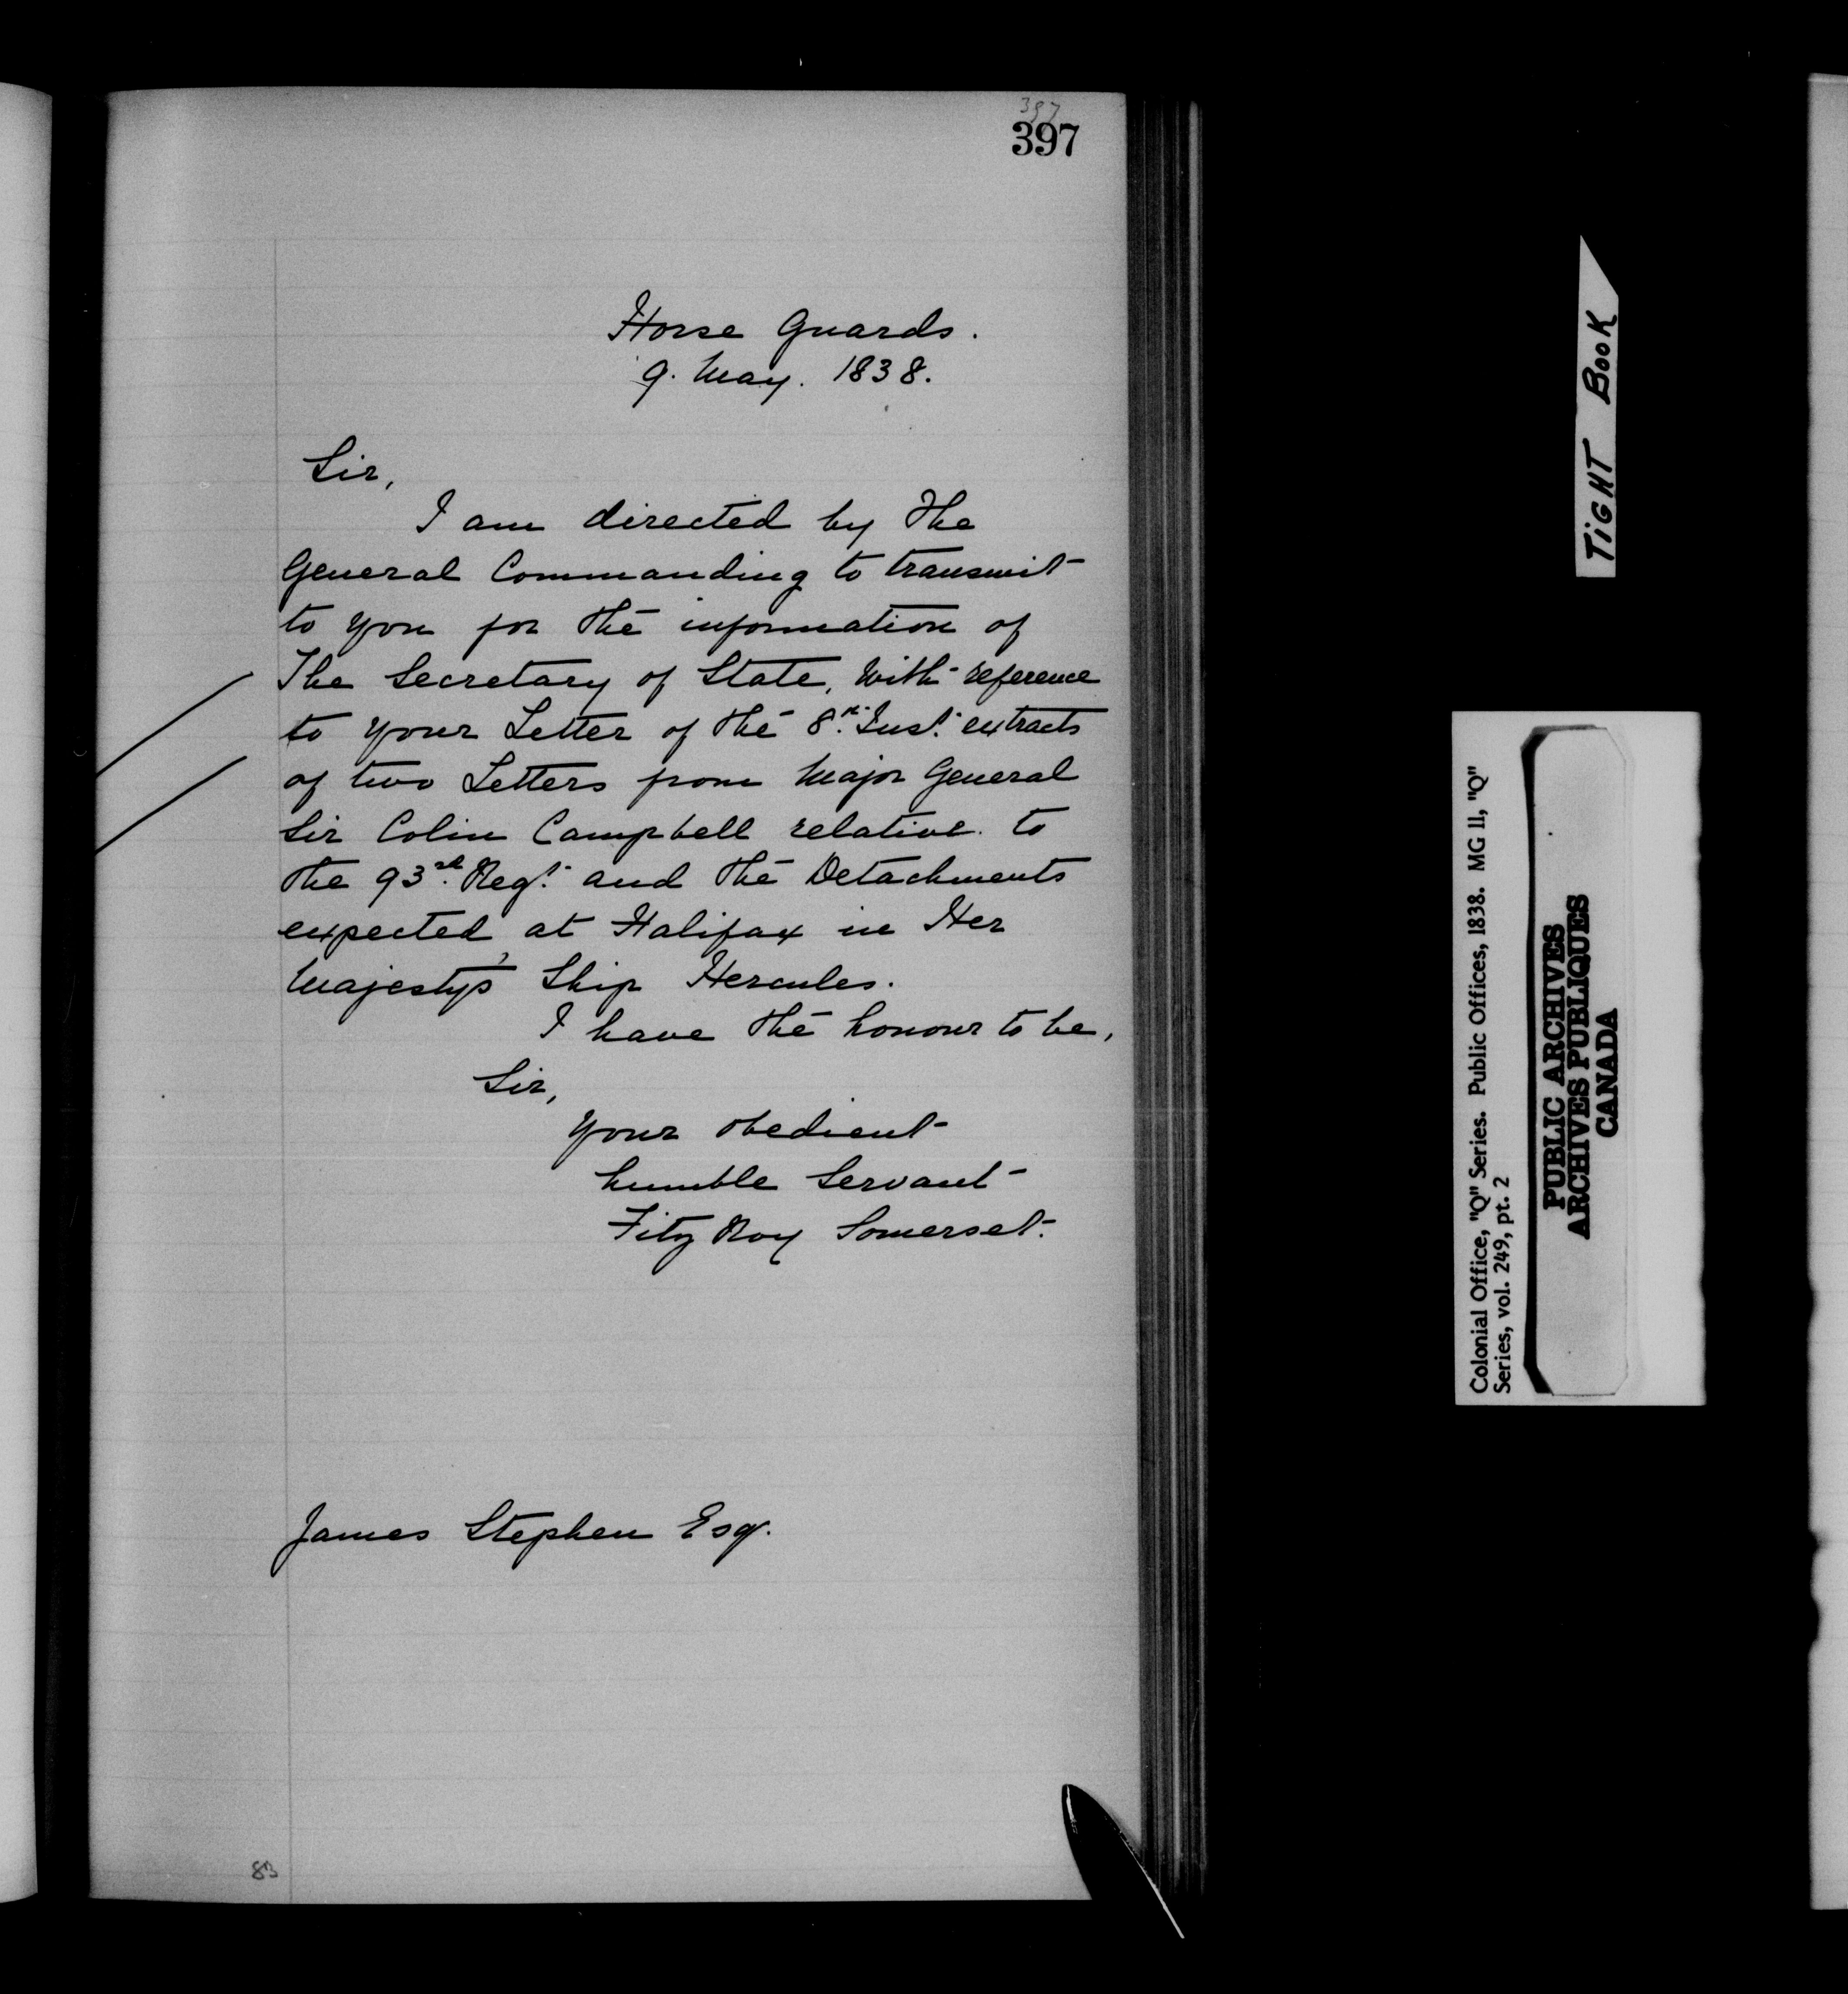 397
397
Horse Guards.
9. May. 1838.
Sir,
I am directed by the
General Commanding to transmit
to you for the information of
The Secretary of State, with reference
to your Letter of the 8th. Inst. extracts
of two Letters from Major General
Sir Colin Campbell relative to
the 93rd. Regt. and the Detachments
expected at Halifax in Her
Majesty's Ship Hercules.
I have the honour to be,
Sir,
Your obedient
humble Servant
Fitz Roy Somerset.
James Stephen Esq.
83
TiGHT BooK
Colonial Office, "Q" Series. Public Offices, 1838. MG 11, "Q"
Series, vol. 249, pt. 2
PUBLIC ARCHIVES
ARCHIVES PUBLIQUES
CANADA